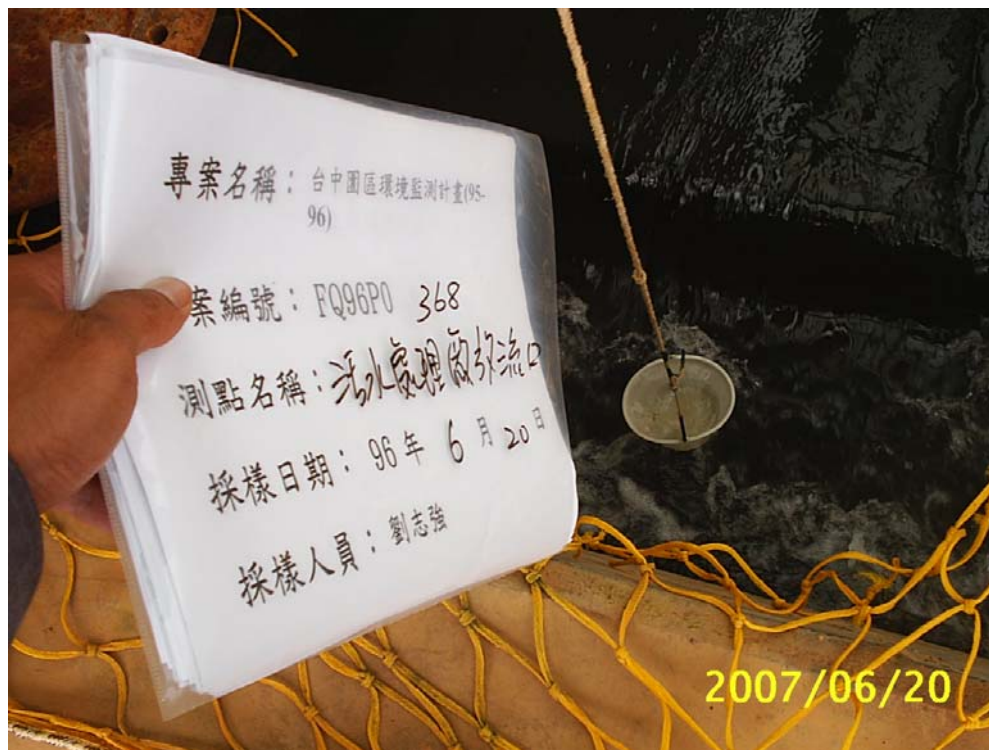 專案名稱：台中園區環境監測計畫(95-
96)
案編號：FQ96P0 368
測點名稱：污水處理廠放流口
採樣日期：96年 6月 20日
採樣人員：劉志強
2007/06/20